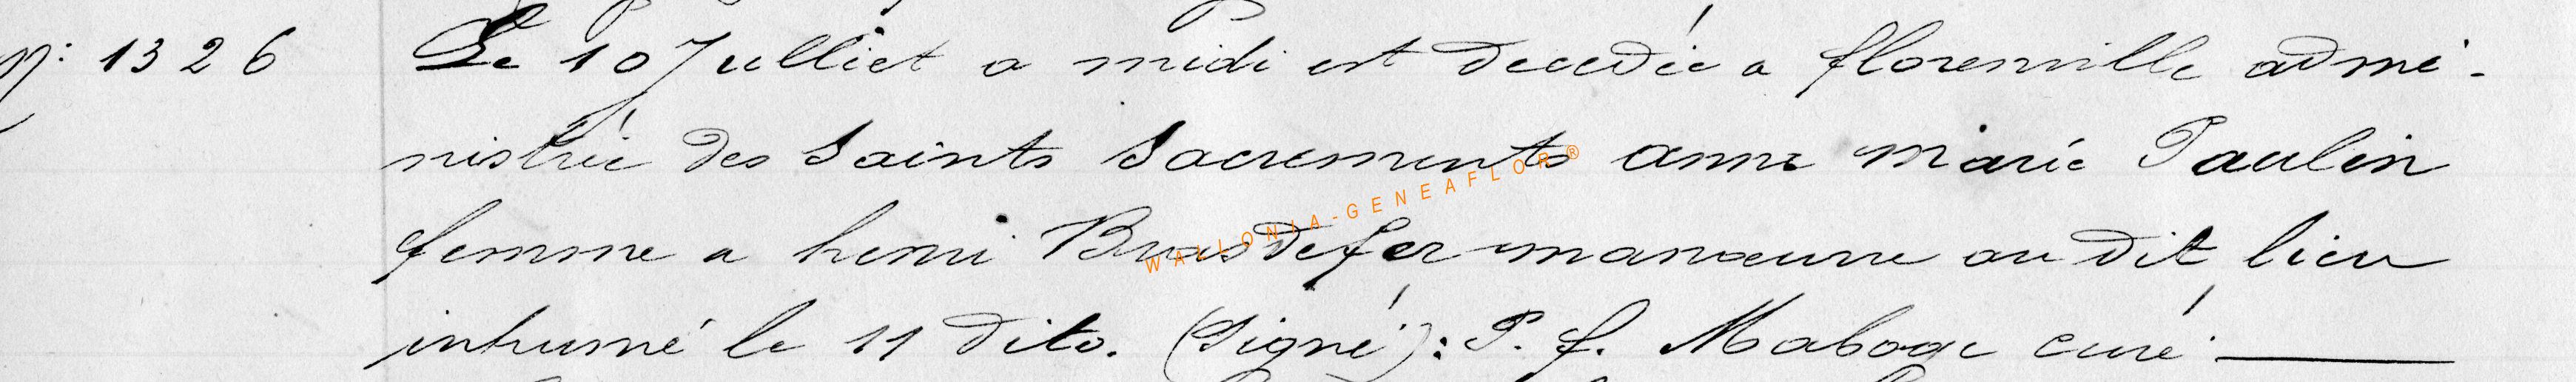 n: 1326 Le 10 Julliet a midi est decedée a florenville admi-
nistrée des Saints Sacrements anne marie Paulin
femme a henri Brasdefer manœuvre au dit lieu
inhumé le 11 dito. (Signé): P. f. curé
WALLONIA-GENEAFLOR®